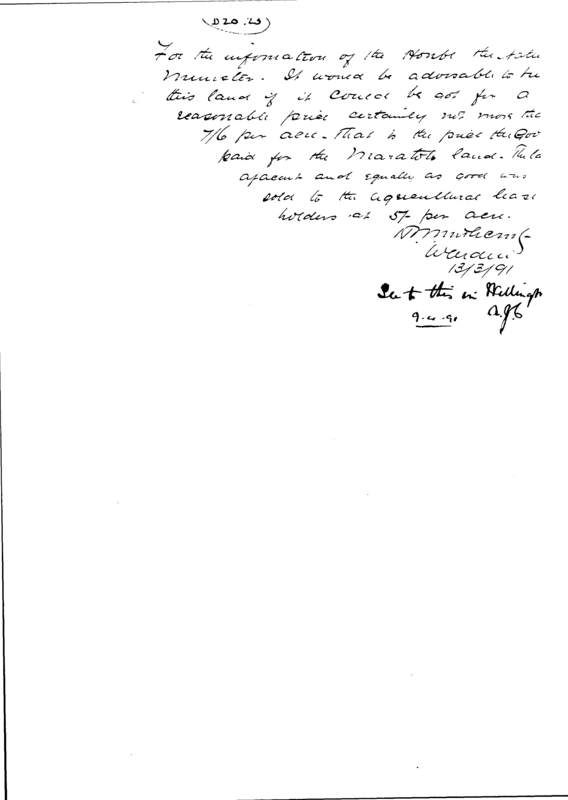 D20.23
For the information of the Honbl the Native
Minister. It would be advisable to
this land if it could be got for a
reasonable price certainly not more the
7/6 per acre. That is the price the Gov
paid for the Maratoto land.
ajacent and equally as good was
sold to the agricultural lease
holders at 5/- per acre.
Warden
13/3/91
See to this in Wellingt
9.4.91 A.J.C